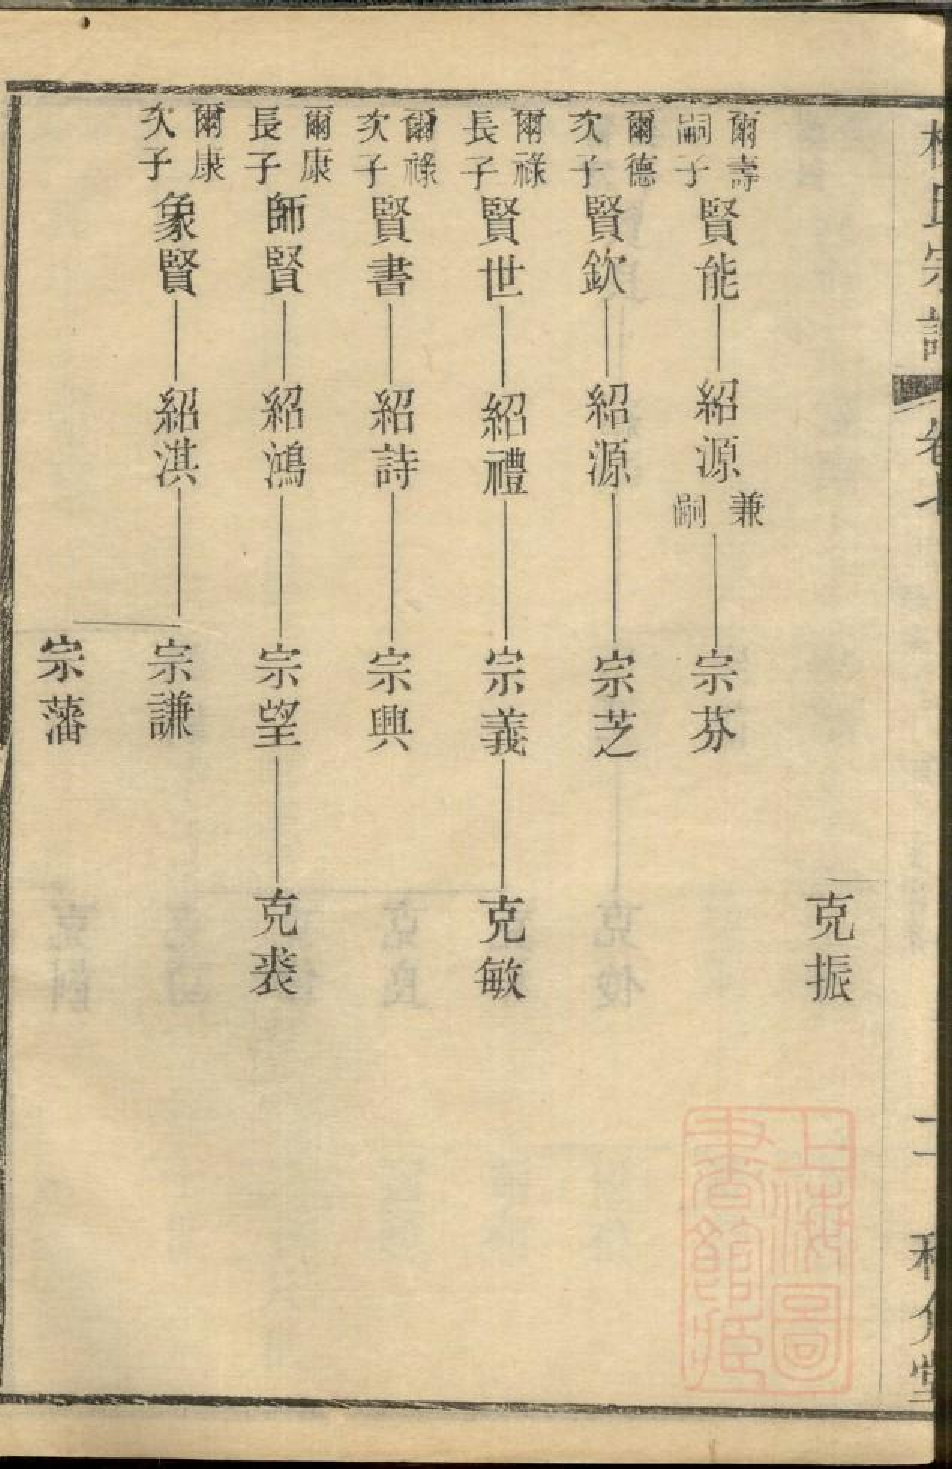 氏宗譜 卷七 二
克振
爾壽嗣子 賢能 紹源 兼嗣 宗芬
爾德次子 賢欽 紹源 宗芝
爾祿長子 賢世 紹禮 宗義 克敏
爾祿次子 賢書 紹詩 宗興
爾康長子 師賢 紹鴻 宗望 克裘
爾康次子 象賢 紹淇 宗謙
宗藩
上海圖
書館